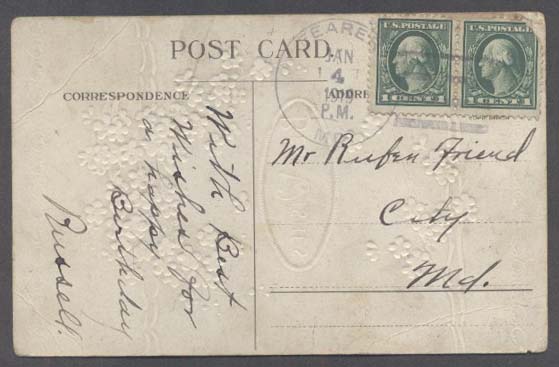 POST CARD.
CORRESPONDENCE
With Best
Wishes for
a happy
Birthday
Russell.
JAN
4
1919
P.M.
U.S. POSTAGE
1 CENT 1
U.S. POSTAGE
1 CENT 1
Mr Ruben Friend
City
Md.